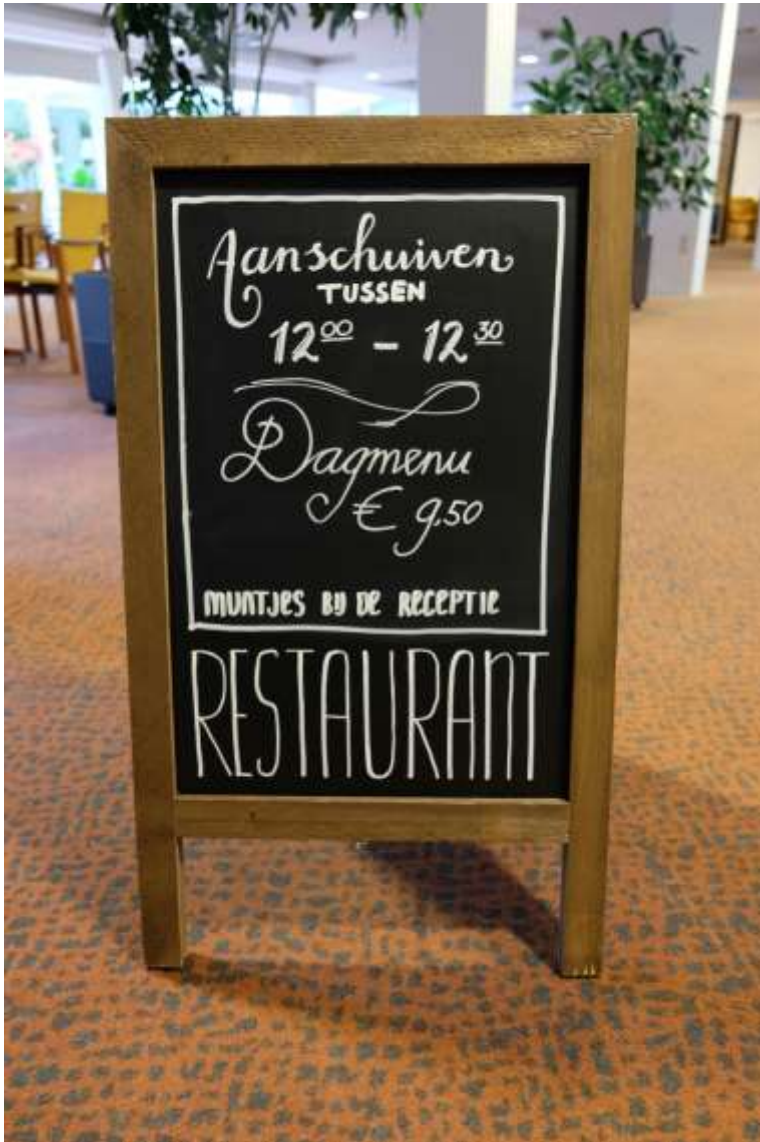 Aanschuiven
TUSSEN
1200 - 12 30
Dagmenu
€ 9,50
MUNTJES BIJ DE RECEPTIE
RESTAURANT